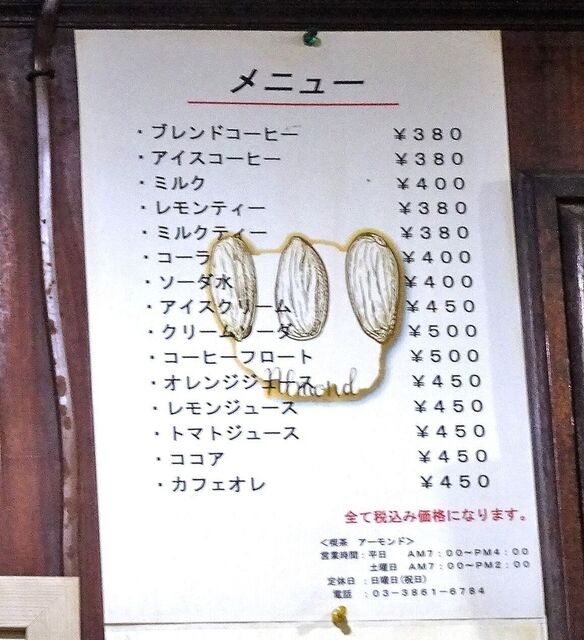 メニュー
・ブレンドコーヒー ￥380
・アイスコーヒー ￥380
・ミルク ￥400
・レモンティー ￥380
・ミルクティー ￥380
・コーラ ￥400
・ソーダ水 ￥400
・アイスクリーム ￥450
・クリームソーダ ￥500
・コーヒーフロート ￥500
・オレンジジュース ￥450
・レモンジュース ￥450
・トマトジュース ￥450
・ココア ￥450
・カフェオレ ￥450
Almond
全て税込み価格になります。
＜喫茶 アーモンド＞
営業時間：平日 AM7：00～PM4：00
土曜日 AM7：00～PM2：00
定休日 ：日曜日(祝日)
電話 ：03-3861-6784